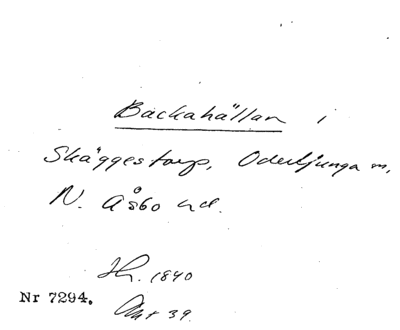 Backahällan i
Skäggestorp, Oderljunga m,
N. Åsbo hd.
1840
Nr 7294.
39.